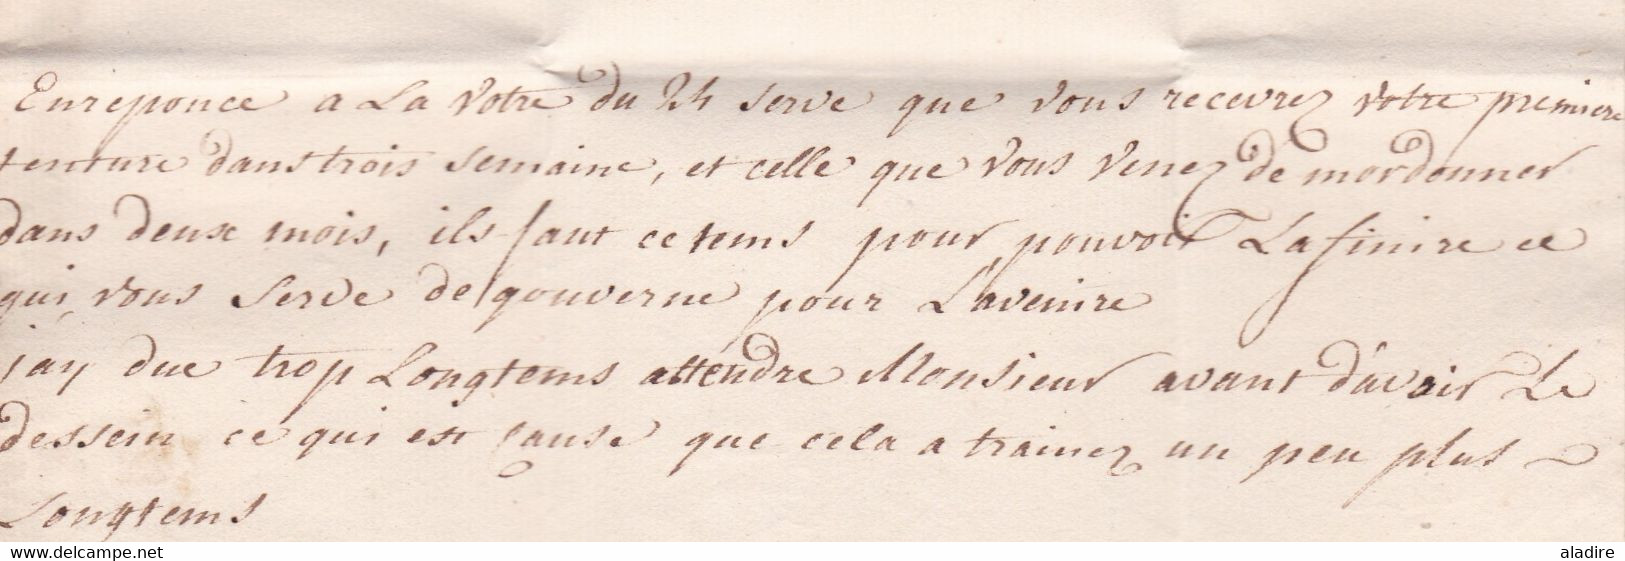 Enreponce a La Votre du 24 serve que vous recevrez votre premiere
tenture dans trois semaine, et celle que vous venez de mordonner
dans deux mois, ils faut ce tems pour pouvoir La finire ce
qui vous serve de gouverne pour L'avenire
jay due trop Longtems attendre Monsieur avant d'avoir Le
dessein ce qui est cause que cela a trainez un peu plus
Longtems
www.delcampe.net
aladire